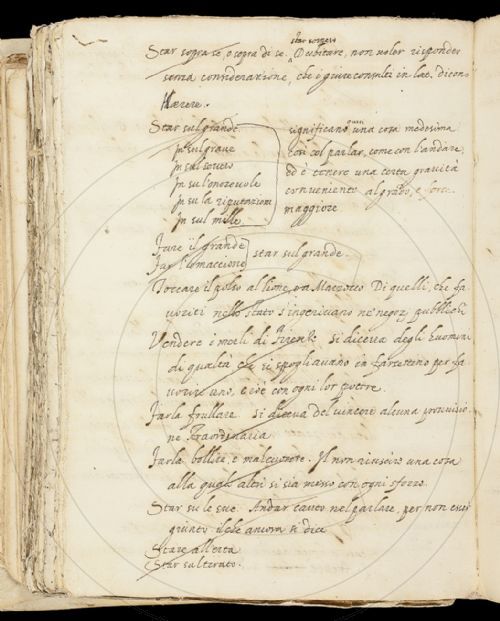 star sospeso
Star sopra se, o sopra di se. Dubitare, non voler risponder
senza considerazione, che i giureconsulti in lat. dicono
Hærere.
Star sul grande
In sul grave
In sul severo
In su l'onorevole
In su la riputazione
In sul mille
significano una cosa medesima
così col parlar, come con l'andare,
ed è tenere una certa gravità
conveniente al grado, e
maggiore
Fare il grande
Far l'omaccione
star sul grande.
Toccare il polso al lione, o a Marzocco Di quelli, che fa
voriti nello stato s'ingerivano ne' negozi pubblici
Vendere i merli di Firenze Si diceva degli huomini
di qualità che si spogliavano in farsettino per fa
vorire uno, e cioè con ogni lor potere.
Farla frullare. Si diceva del vincere alcuna provvisio
ne straordinaria
Farla bollire, e mal cuocere. Il non riuscire una cosa
alla quale altri si sia messo con ogni sforzo.
Star su le sue. Andar cauto nel parlare, per non esser
giunto il che ancora si dice
Stare all'erta
Star sul tirato.